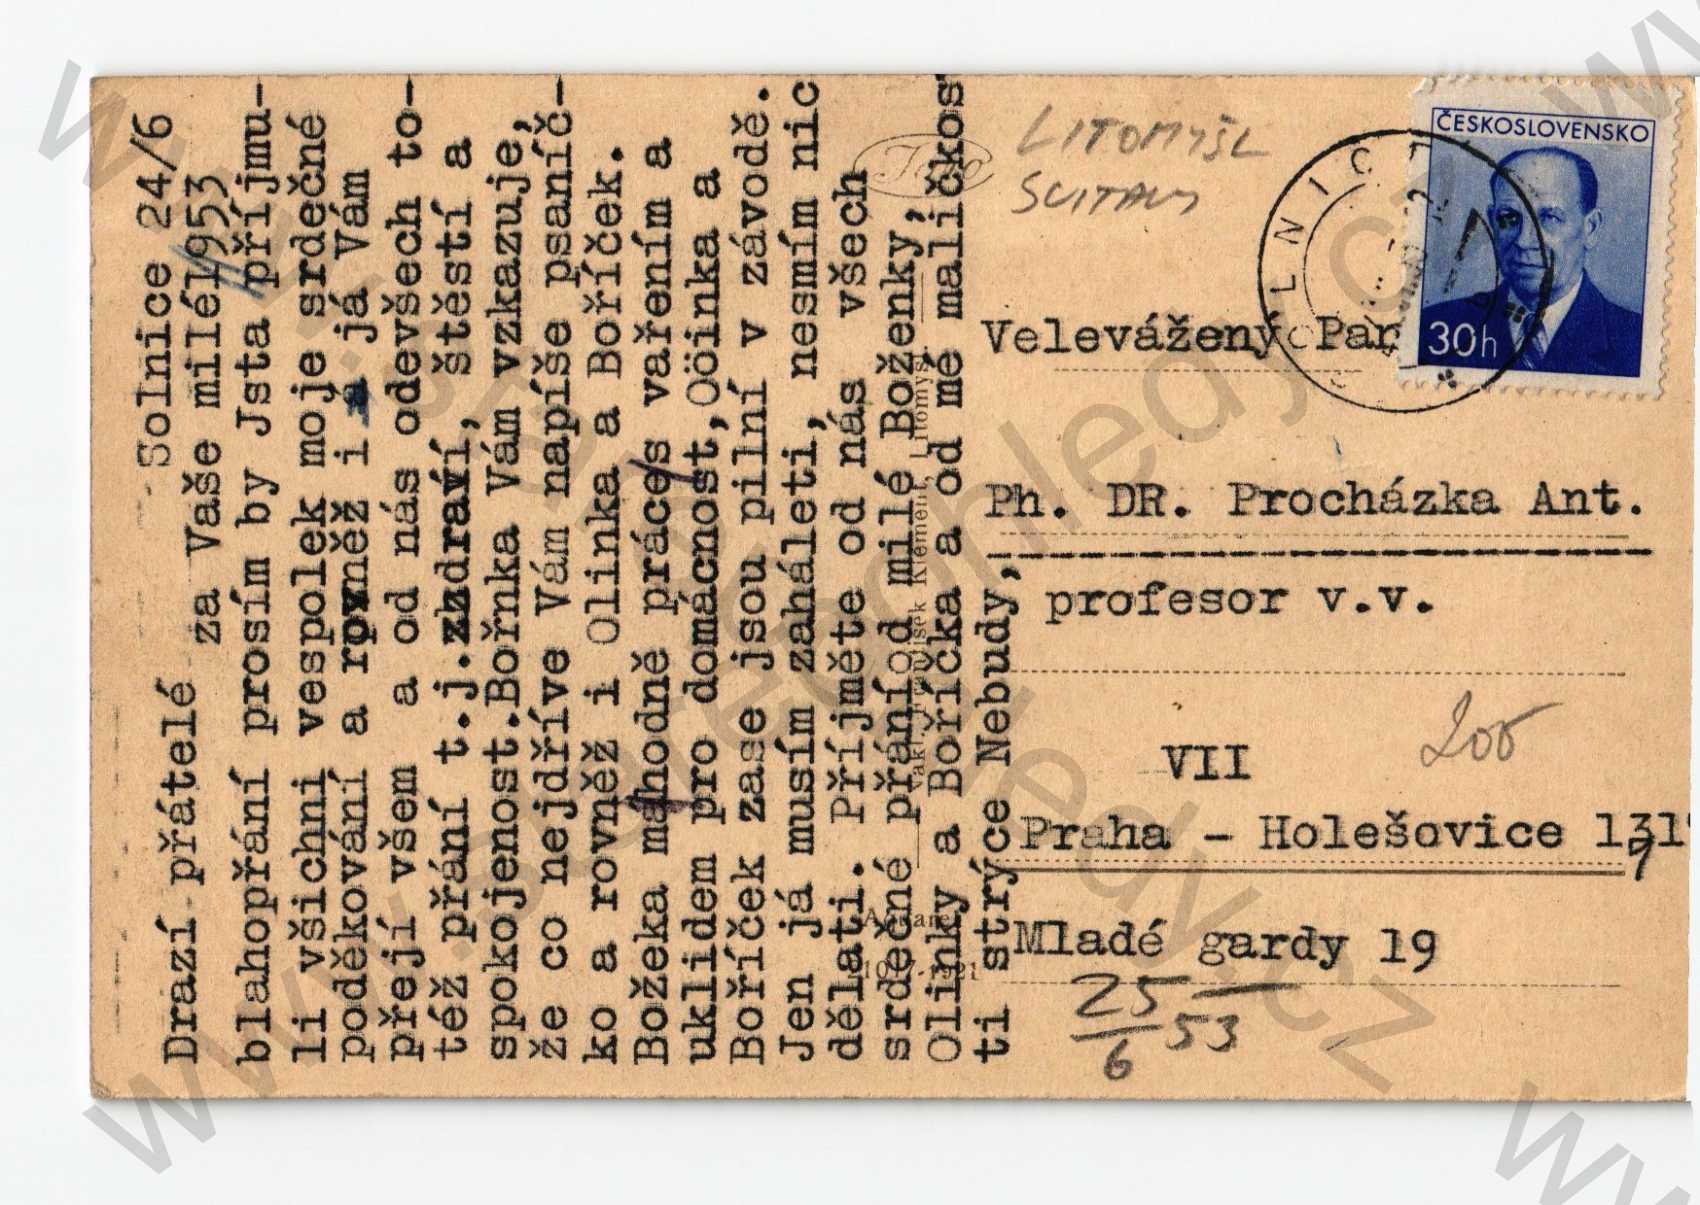 Solnice 24/6
1953
Drazí přátelé
za Vaše milé
blahopřání prosím by Jsta příjmu-
li všichni vespolek moje srdečné
poděkování a rovněž i a já Vám
přejí všem a od nás odevšech to-
též přání t.j.zhdraví, štěstí a
spokojenost.Bořnka Vám vzkazuje,
že co nejdříve Vám napíše psaníč-
ko a rovněž i Olinka a Boříček.
Božeka máhodně práces vařením a
uklidem pro domácnost,Oöinka a
Boříček zase jsou pilní v závodě.
Jen já musím zaháleti, nesmím nic
dělati. Příjměte od nás všech
srdečné přání od milé Boženky,
Olinky a Boříčka a od mé maličkos
ti strýce Nebudy,
LITOMYŠL
SVITAVY
ČESKOSLOVENSKO
30h
Velevážený Pan
Ph. DR. Procházka Ant.
profesor v.v.
VII
200
Praha - Holešovice 1317
Mladé gardy 19
25
6 53
www.starepohledy.cz
www.starepohledy.cz